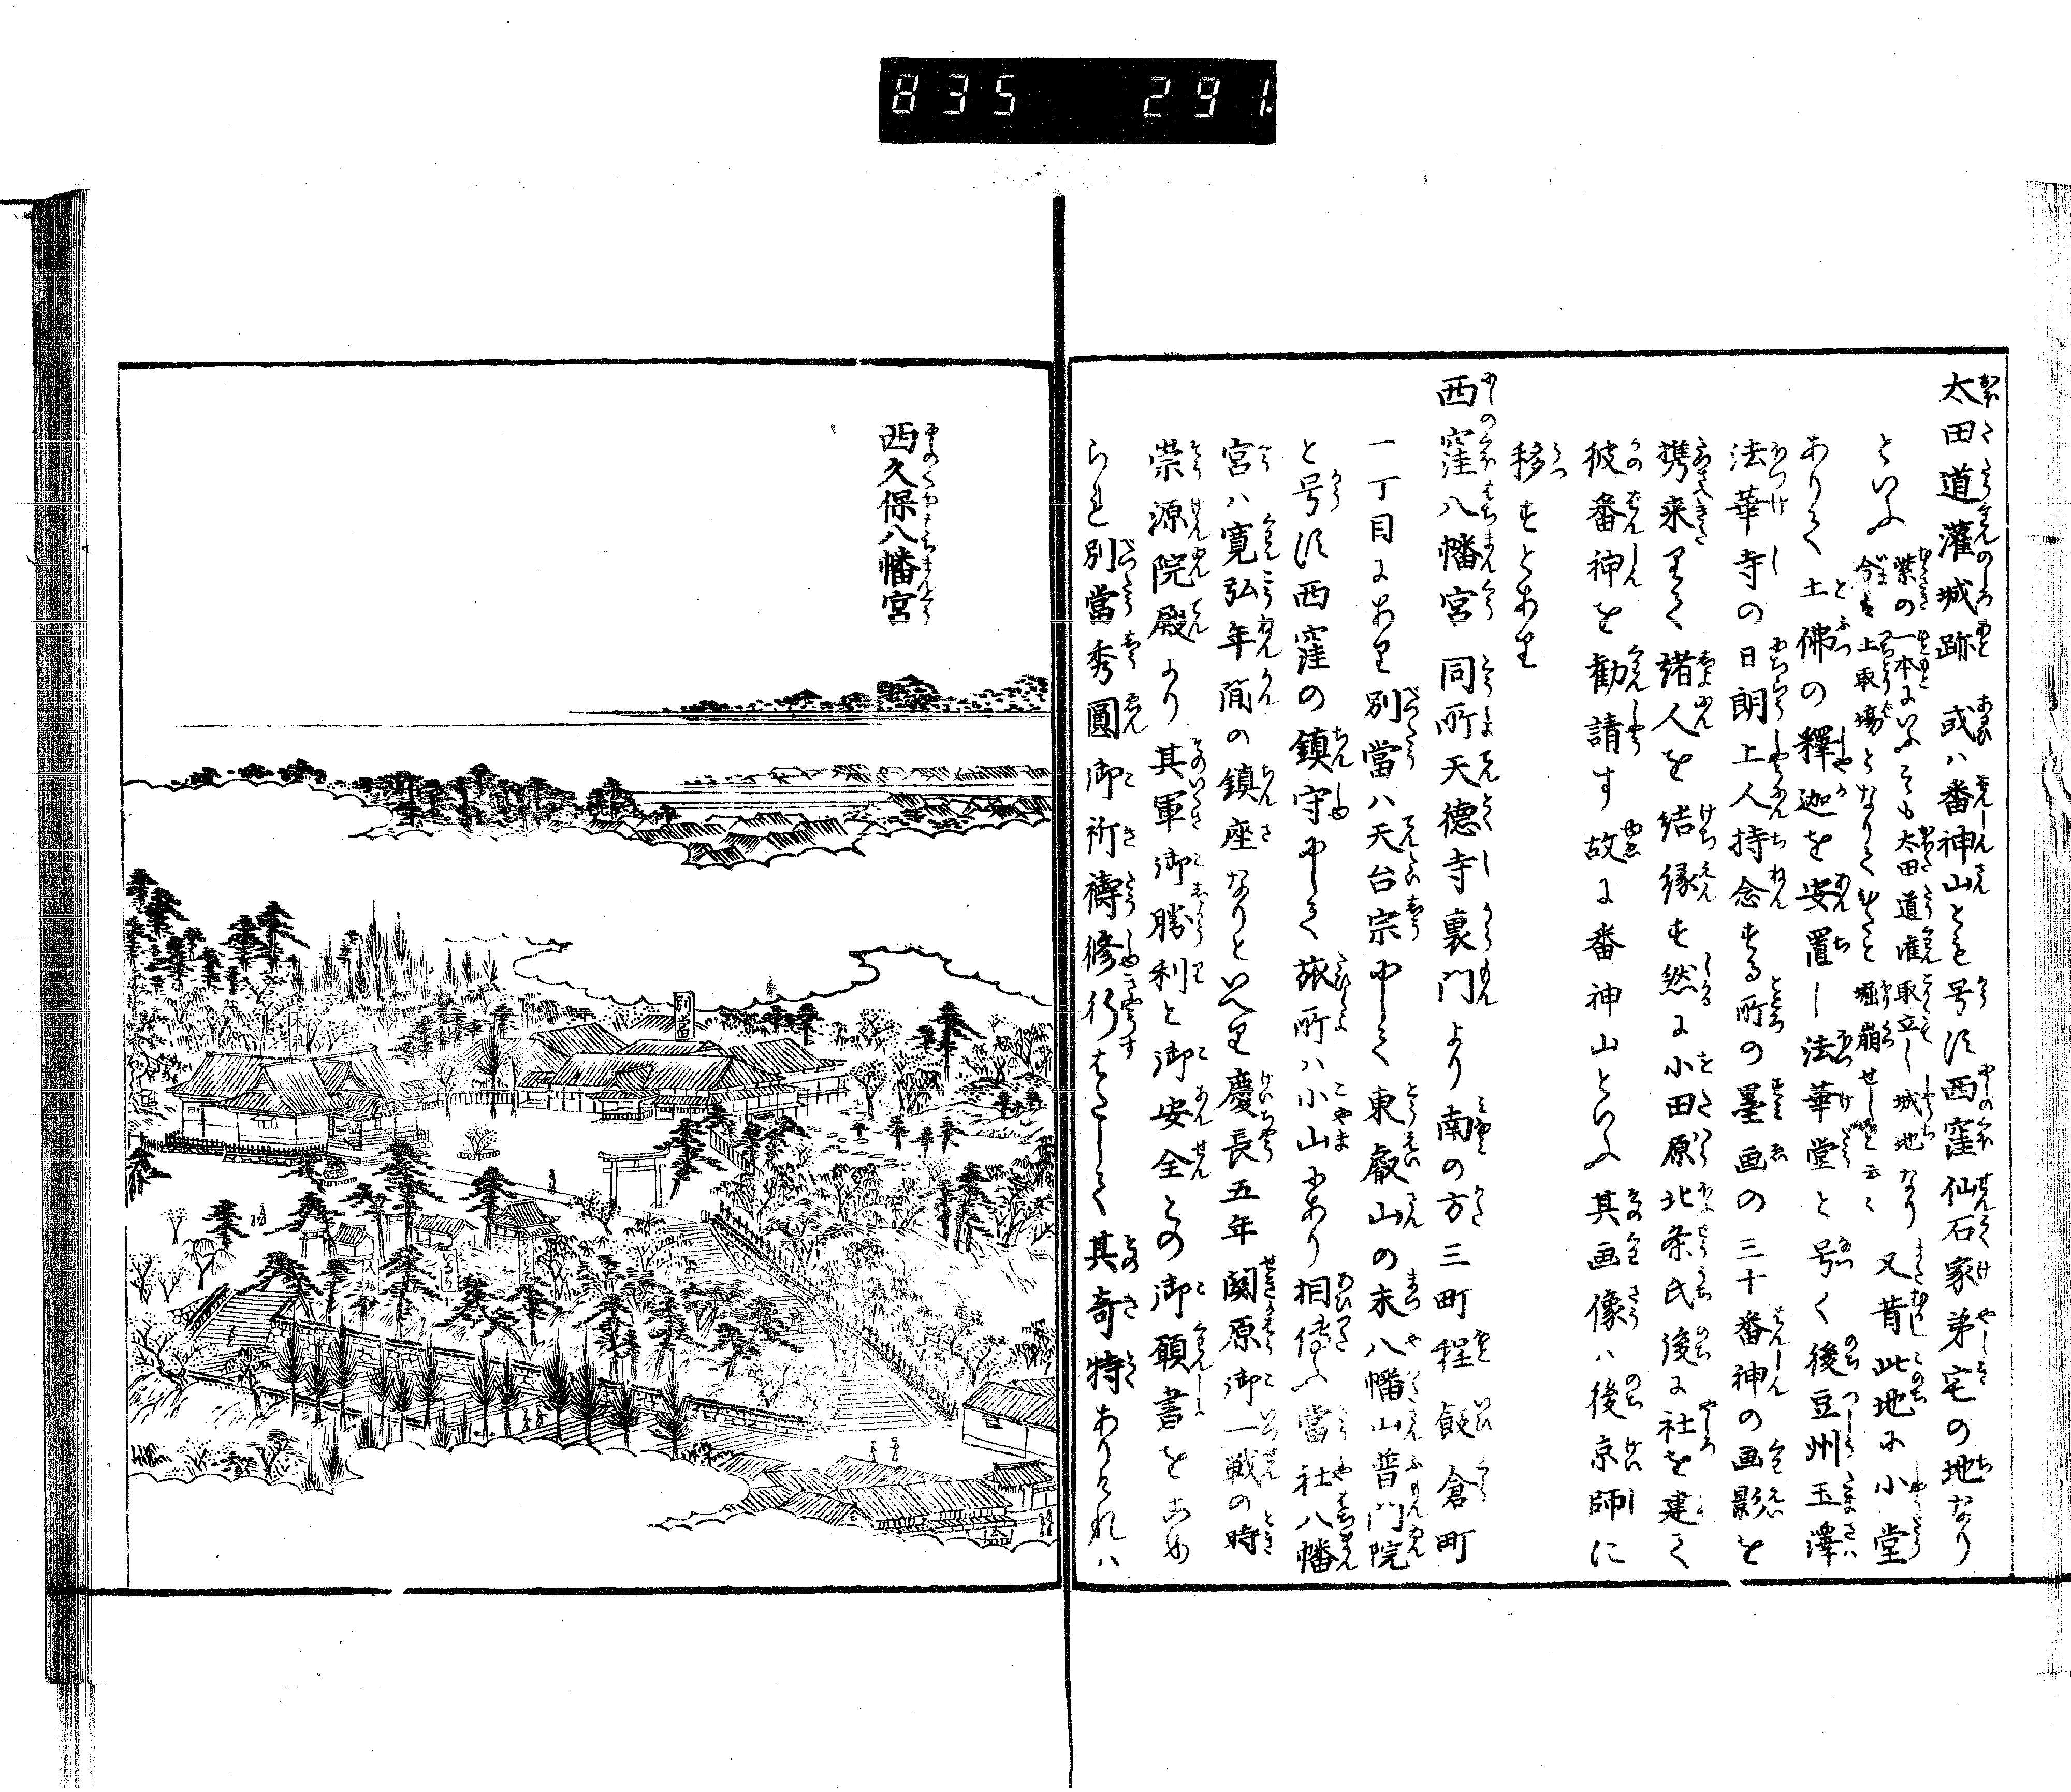 835 291
太田道灌城跡 或ハ番神山とも号す西窪仙石家弟宅の地なり
といふ 紫の一本にいふそも太田道灌取立し城地なり
今は土取場となりてむさと堀崩せしと云々 又昔此地に小堂
ありて土佛の釋迦を安置し法華堂と号く後豆州玉澤
法華寺の日朗上人持念する所の墨画の三十番神の画影を
携来りて諸人を結縁す然に小田原北条氏後に社を建て
彼番神を勸請す故に番神山といふ其画像ハ後京師に
移すとあり
西窪八幡宮 同所天德寺裏門より南の方三町程飯倉町
一丁目にあり別當ハ天台宗にして東叡山の末八幡山普門院
と号す西窪の鎮守にして旅所ハ小山にあり相傳ふ當社八幡
宮ハ寛弘年間の鎮座なりといへり慶長五年関原御一戦の時
崇源院殿より其軍御勝利と御安全との御願書をこめ
られ別當秀圓御祈禱修行せしめらる其奇特ありけれハ
西久保八幡宮
別當